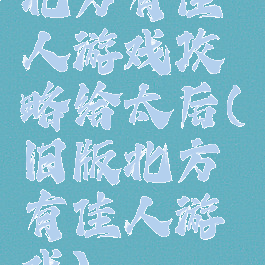 北方有佳
人游戏攻
略给太后(
旧版北方
有佳人游
戏)